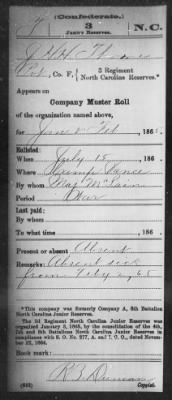 (Confederate.)
3
N.C.
Junior Reserves.
J H H
Pvt, Co. F, 3 Regiment
North Carolina Reserves.*
Appears on
Company Muster Roll
of the organization named above,
for Jan & Feb, 1865.
Enlisted:
When July 15, 186
Where Camp Vance
By whom Maj McLean
Period War
Last paid:
By whom
To what time, 186
Present or absent Absent
Remarks: Absent sick
from Feby 2, 65
*This company was formerly Company A, 8th Battalion
North Carolina Junior Reserves.
The 3d Regiment North Carolina Junior Reserves was
organized January 3, 1865, by the consolidation of the 4th,
7th and 8th Battalions North Carolina Junior Reserves in
compliance with S. O. No. 277, A. and I. G. O., dated November
22, 1864.
Book mark:
R B
Copyist.